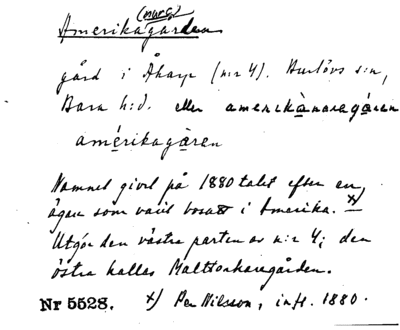 (nareg)
Amerikagarden
gård i Åkarp (nr 4). Burlövs s:n,
Bara h:d. eller amerikànaregåren
amérikagåren
Namnet givet på 1880 talet efter en
ägare som varit bosatt i Amerika. x)
Utgör den västra parten av n:r 4; den
östra kallas
Nr 5528. x) Per Nilsson, inft. 1880.